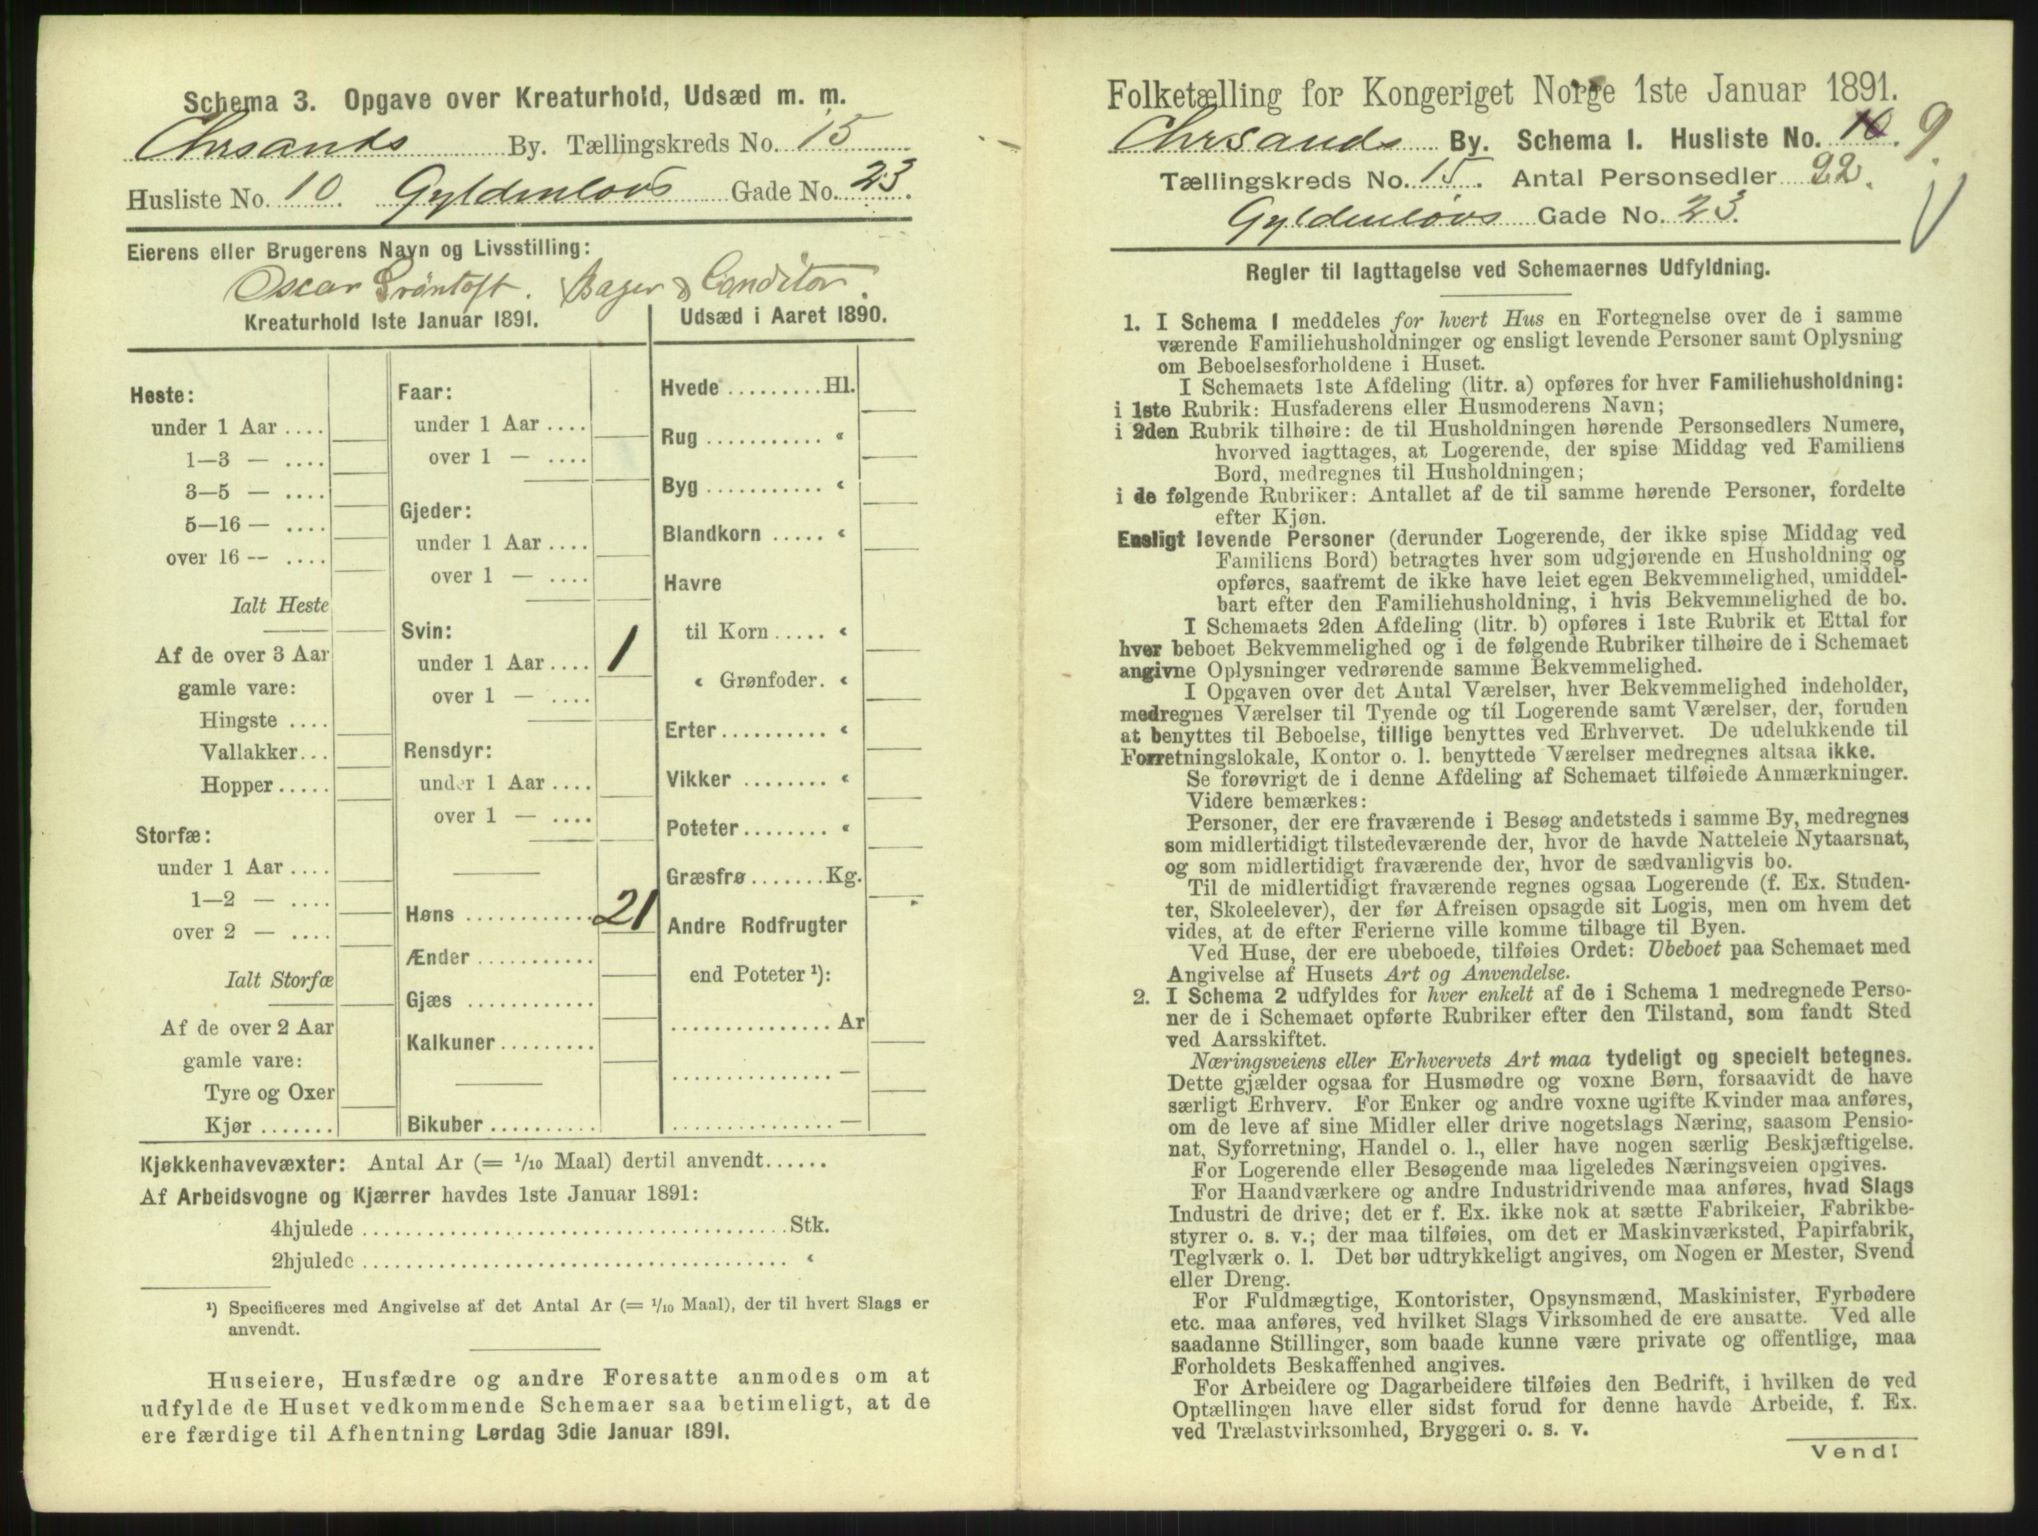 Schema 3. Opgave over Kreaturhold, Udsæd m. m.
Chrsands By. Tællingskreds No. 15
Husliste No. 10. Gyldenløvs Gade No. 23.
Eierens eller Brugerens Navn og Livsstilling:
Oscar Grøntoft. Bager & Conditor.
Kreaturhold 1ste Januar 1891.
Heste:
under 1 Aar ....
1—3 — ....
3—5 — ....
5—16 — ....
over 16 — ....
Ialt Heste
Af de over 3 Aar
gamle vare:
Hingste ....
Vallakker...
Hopper .....
Storfæ:
under 1 Aar ....
1—2 — ....
over 2 — ....
Ialt Storfæ
Af de over 2 Aar
gamle vare:
Tyre og Oxer
Kjør .......
Faar:
under 1 Aar ....
over 1 — ....
Gjeder:
under 1 Aar ....
over 1 — ....
Svin:
under 1 Aar .... 1
over 1 — ....
Rensdyr:
under 1 Aar ....
over 1 — ....
Høns ............ 21
Ænder ...........
Gjæs ............
Kalkuner .........
Bikuber ..........
Udsæd i Aaret 1890.
Hvede .........Hl.
Rug ........... «
Byg ........... «
Blandkorn ..... «
Havre
til Korn ..... «
« Grønfoder. «
Erter.......... «
Vikker ........ «
Poteter........ «
Græsfrø .......Kg.
Andre Rodfrugter
end Poteter ¹):
............... Ar
............... —
............... —
Kjøkkenhavevæxter: Antal Ar (= 1/10 Maal) dertil anvendt......
Af Arbeidsvogne og Kjærrer havdes 1ste Januar 1891:
4hjulede ........................................Stk.
2hjulede ........................................ «
¹) Specificeres med Angivelse af det Antal Ar (= 1/10 Maal), der til hvert Slags er
anvendt.
Huseiere, Husfædre og andre Foresatte anmodes om at
udfylde de Huset vedkommende Schemaer saa betimeligt, at de
ere færdige til Afhentning Lørdag 3die Januar 1891.
Folketælling for Kongeriget Norge 1ste Januar 1891.
Chrsands By. Schema I. Husliste No. 10. 9.
Tællingskreds No. 15. Antal Personsedler 22.
Gyldenløvs Gade No. 23.
Regler til Iagttagelse ved Schemaernes Udfyldning.
1. I Schema 1 meddeles for hvert Hus en Fortegnelse over de i samme
værende Familiehusholdninger og ensligt levende Personer samt Oplysning
om Beboelsesforholdene i Huset.
I Schemaets 1ste Afdeling (litr. a) opføres for hver Familiehusholdning:
i 1ste Rubrik: Husfaderens eller Husmoderens Navn;
i 2den Rubrik tilhøire: de til Husholdningen hørende Personsedlers Numere,
hvorved iagttages, at Logerende, der spise Middag ved Familiens
Bord, medregnes til Husholdningen;
i de følgende Rubriker: Antallet af de til samme hørende Personer, fordelte
efter Kjøn.
Ensligt levende Personer (derunder Logerende, der ikke spise Middag ved
Familiens Bord) betragtes hver som udgjørende en Husholdning og
opføres, saafremt de ikke have leiet egen Bekvemmelighed, umiddel-
bart efter den Familiehusholdning, i hvis Bekvemmelighed de bo.
I Schemaets 2den Afdeling (litr. b) opføres i 1ste Rubrik et Ettal for
hver beboet Bekvemmelighed og i de følgende Rubriker tilhøire de i Schemaet
angivne Oplysninger vedrørende samme Bekvemmelighed.
I Opgaven over det Antal Værelser, hver Bekvemmelighed indeholder,
medregnes Værelser til Tyende og til Logerende samt Værelser, der, foruden
at benyttes til Beboelse, tillige benyttes ved Erhvervet. De udelukkende til
Forretningslokale, Kontor o. l. benyttede Værelser medregnes altsaa ikke.
Se forøvrigt de i denne Afdeling af Schemaet tilføiede Anmærkninger.
Videre bemærkes:
Personer, der ere fraværende i Besøg andetsteds i samme By, medregnes
som midlertidigt tilstedeværende der, hvor de havde Natteleie Nytaarsnat,
og som midlertidigt fraværende der, hvor de sædvanligvis bo.
Til de midlertidigt fraværende regnes ogsaa Logerende (f. Ex. Studen-
ter, Skoleelever), der før Afreisen opsagde sit Logis, men om hvem det
vides, at de efter Ferierne ville komme tilbage til Byen.
Ved Huse, der ere ubeboede, tilføies Ordet: Ubeboet paa Schemaet med
Angivelse af Husets Art og Anvendelse.
2. I Schema 2 udfyldes for hver enkelt af de i Schema 1 medregnede Perso-
ner de i Schemaet opførte Rubriker efter den Tilstand, som fandt Sted
ved Aarsskiftet.
Næringsveiens eller Erhvervets Art maa tydeligt og specielt betegnes.
Dette gjælder ogsaa for Husmødre og voxne Børn, forsaavidt de have
særligt Erhverv. For Enker og andre voxne ugifte Kvinder maa anføres,
om de leve af sine Midler eller drive nogetslags Næring, saasom Pensio-
nat, Syforretning, Handel o. l., eller have nogen særlig Beskjæftigelse.
For Logerende eller Besøgende maa ligeledes Næringsveien opgives.
For Haandværkere og andre Industridrivende maa anføres, hvad Slags
Industri de drive; det er f. Ex. ikke nok at sætte Fabrikeier, Fabrikbe-
styrer o. s. v.; der maa tilføies, om det er Maskinværksted, Papirfabrik,
Teglværk o. l. Det bør udtrykkeligt angives, om Nogen er Mester, Svend
eller Dreng.
For Fuldmægtige, Kontorister, Opsynsmænd, Maskinister, Fyrbødere
etc. maa anføres, ved hvilket Slags Virksomhed de ere ansatte. Ved alle
saadanne Stillinger, som baade kunne være private og offentlige, maa
Forholdets Beskaffenhed angives.
For Arbeidere og Dagarbeidere tilføies den Bedrift, i hvilken de ved
Optællingen have eller sidst forud for denne havde Arbeide, f. Ex.
ved Trælastvirksomhed, Bryggeri o. s. v.
Vend!